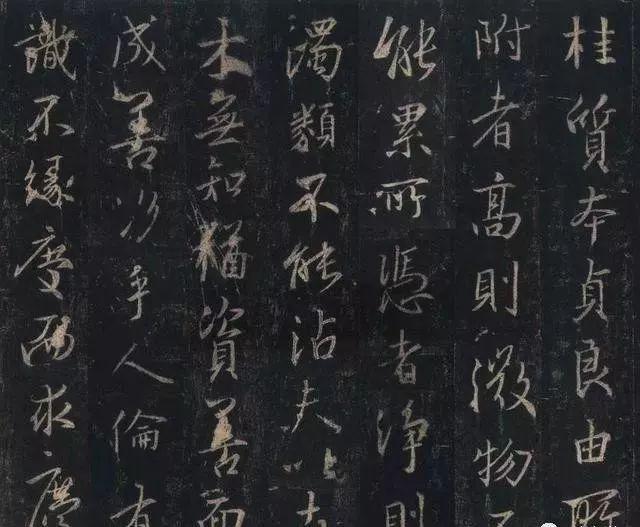 桂質本貞良由所
附者高則微物不
能累所憑者淨則
濁類不能沾夫以卉
木無知猶資善而
成善況乎人倫有
識不緣慶而求慶